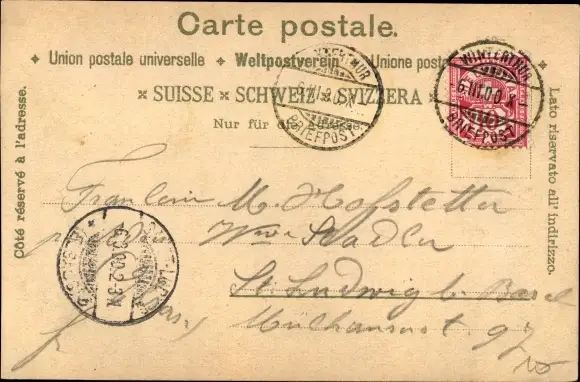 Carte postale.
Union postale universelle Weltpostverein Unione posta
SUISSE SCHWEIZ SVIZZERA
Nur für die
Côté réservé à l'adresse.
Lato riservato all' indirizzo.
WINTERTHUR
6.III.00
BRIEFPOST
WINTERTHUR
BRIEFPOST
6.3.00.2-3N
Fraulein M. Hofstetter
Wwe Stadler
St. Ludwig b. Basel
Mülhauserst 97